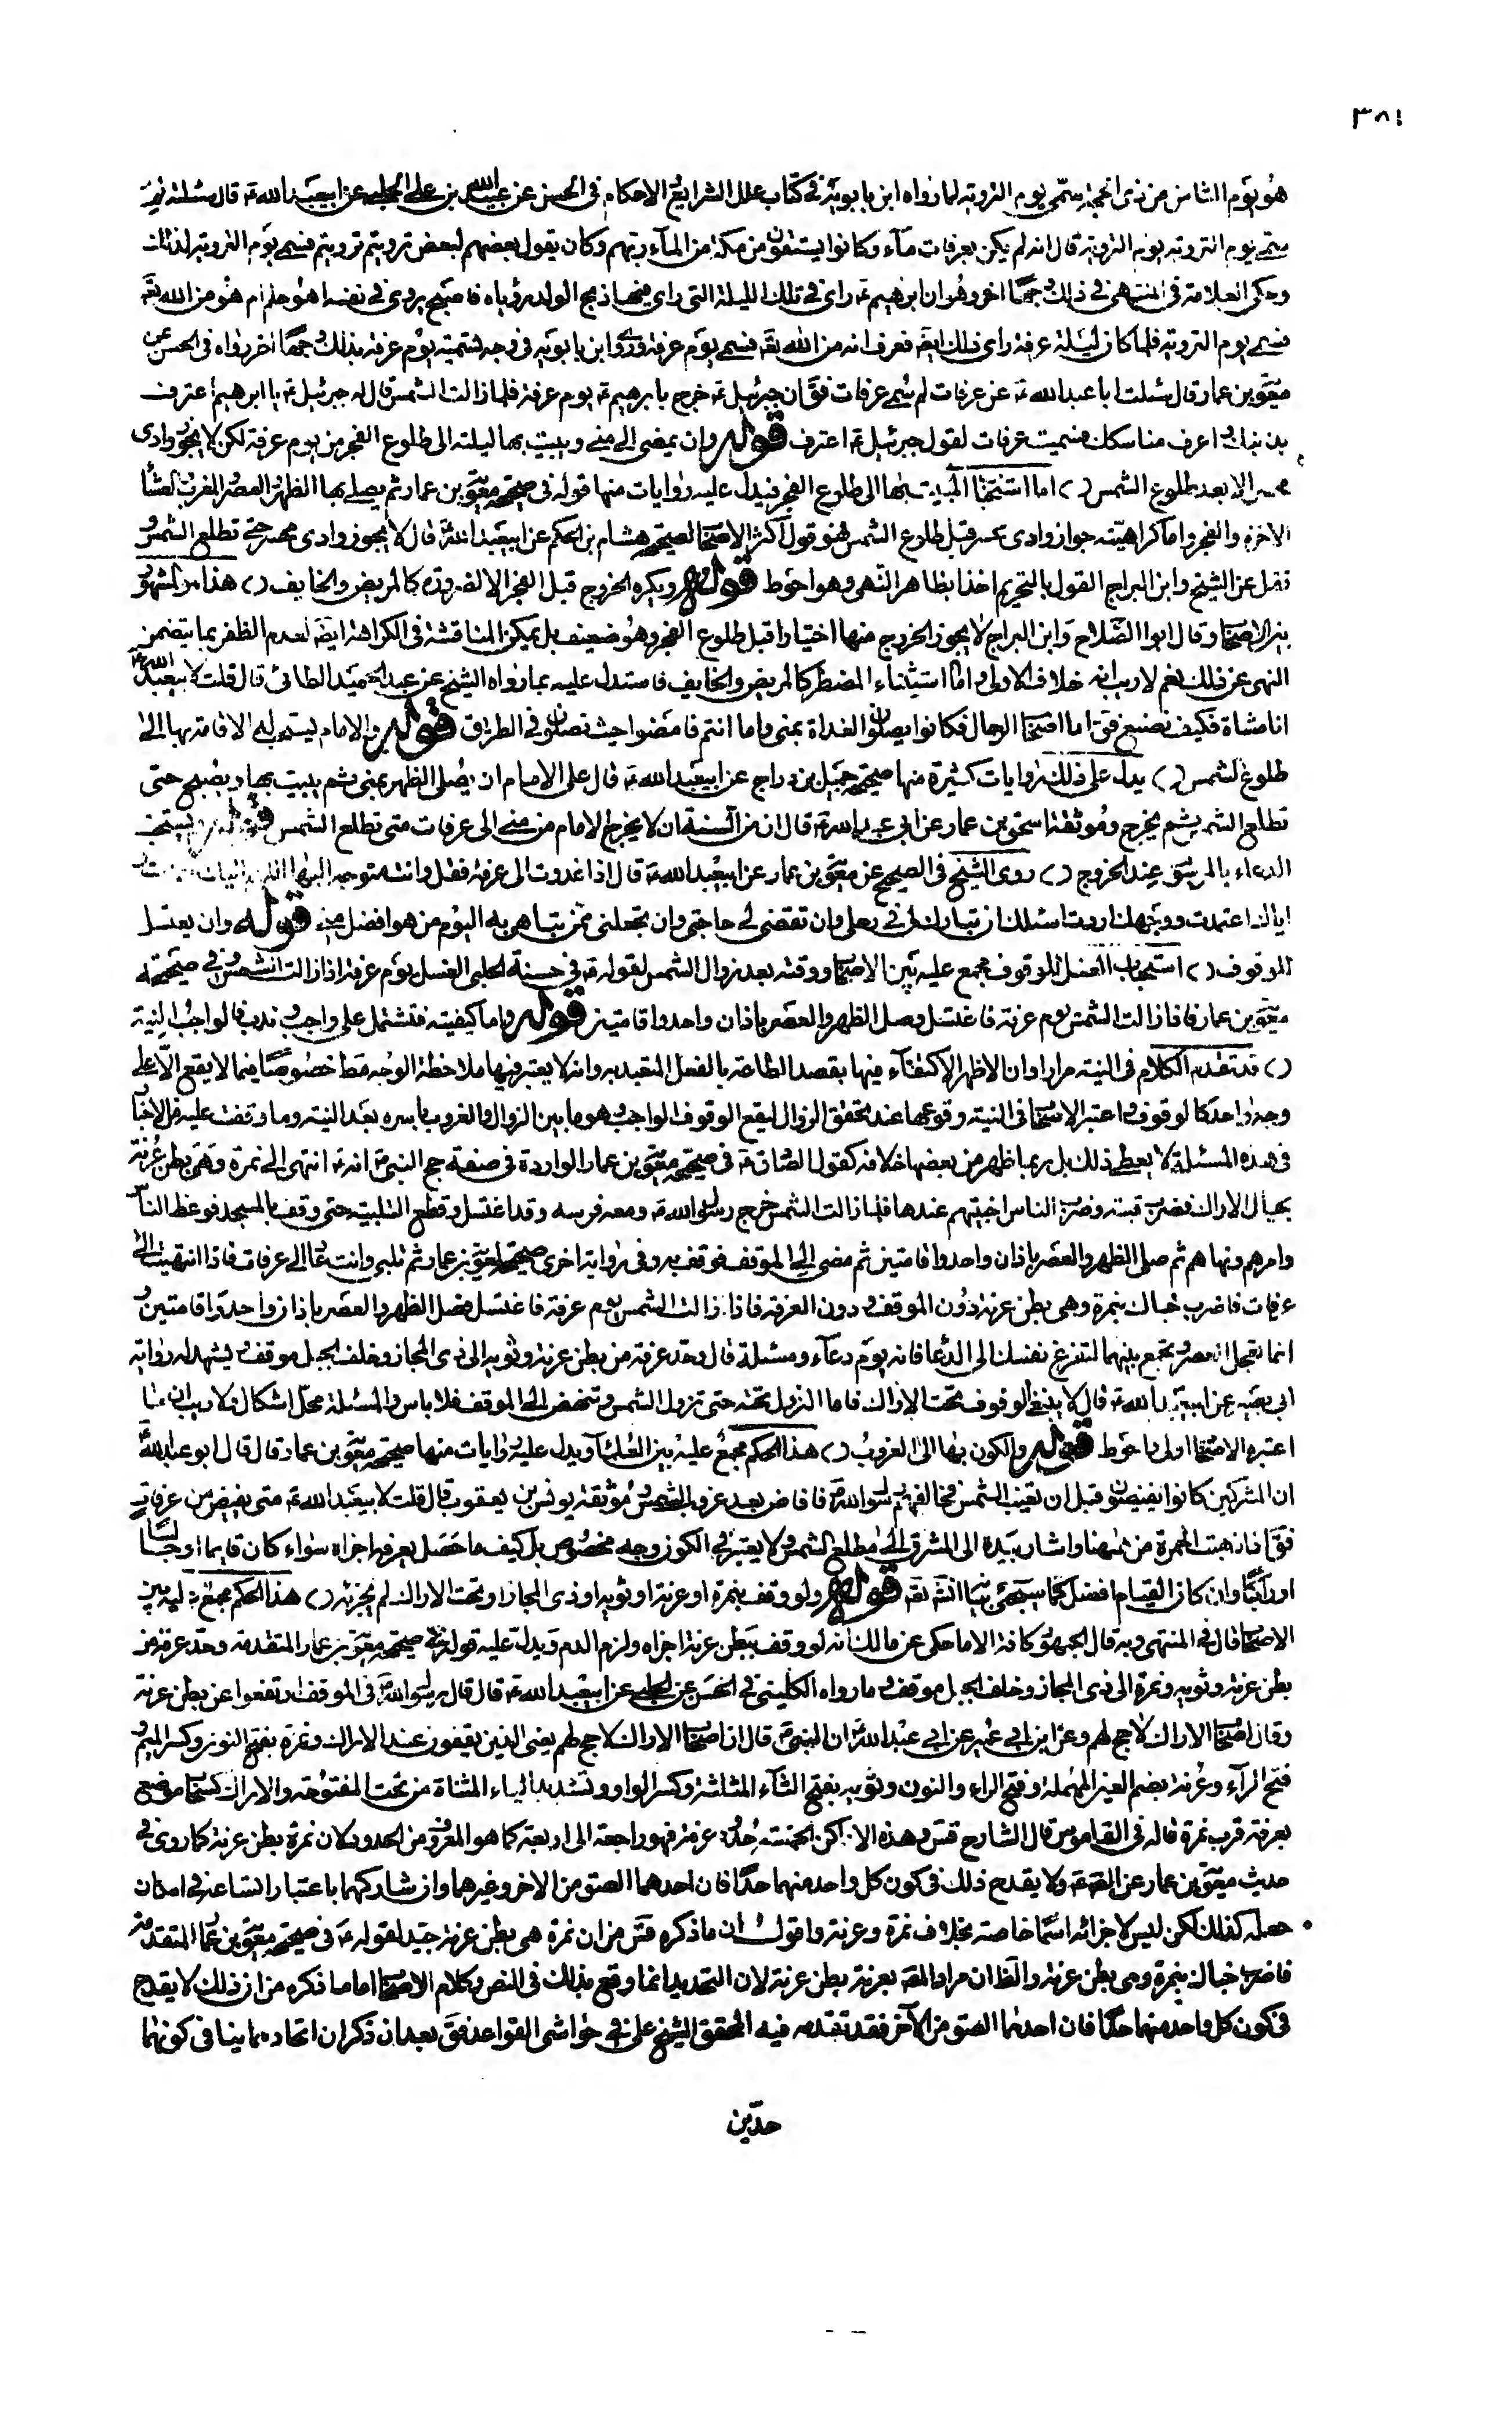 ٣٨١
هو يوم الثامن من ذى الحجة سمّى يوم التروية لما رواه ابن بابويه فى كتاب علل الشرايع الاحكام فى الحسن عن عبيد الله بن على الحلبى عن ابيعبد الله ع قال سئلته لم
سمّى يوم التروية يوم التروية قال انه لم يكن بعرفات ماء وكانوا يستقون من مكة من الماء ريهم وكان يقول بعضهم لبعض ترويتم ترويتم فسمى يوم التروية لذلك
وحكى العلامة فى المنتهى فى ذلك وجها اخر وهو ان ابرهيم ع راى فى تلك الليلة التى راى فيها ذبح الولد رؤياه فاصبح يروى فى نفسه اهو حلم ام هو من الله تعه
فسمى يوم التروية فلما كان ليلة عرفة راى ذلك ايضه فعرف انه من الله تعه فسمى يوم عرفة وروى ابن بابويه فى وجه تسمية يوم عرفة بذلك وجها اخر رواه فى الحسن عن
معوية بن عمار قال سئلت ابا عبد الله ع عن عرفات لم سمى عرفات فقال ان جبرئيل ع خرج بابرهيم ع يوم عرفة فلما زالت الشمس قال له جبرئيل ع يا ابرهيم اعترف
بذنبك واعرف مناسكك فسميت عرفات لقول جبرئيل ع اعترف قوله وان يمضى الى منى ويبيت بها ليلته الى طلوع الفجر من يوم عرفة لكن لا يجوز وادى
محسر الا بعد طلوع الشمس ( ) اما استحباب المبيت بها الى طلوع الفجر فيدل عليه روايات منها قوله فى صحيحة معوية بن عمار ثم يصلى بها الظهر والعصر والمغرب والعشاء
الاخرة والفجر واما كراهيته جواز وادى محسر قبل طلوع الشمس فهو قول اكثر الاصحاب لصحيحة هشام بن الحكم عن ابيعبد الله ع قال لا يجوز وادى محسر حتى تطلع الشمس و
نقل عن الشيخ وابن البراج القول بالتحريم اخذا بظاهر النهى وهو احوط قوله ويكره الخروج قبل الفجر الا لضرورة كالمريض والخايف ( ) هذا هو المشهور
بين الاصحاب وقال ابو الصلاح وابن البراج لا يجوز الخروج منها اختيارا قبل طلوع الفجر وهو ضعيف بل يمكن المناقشة فى الكراهة ايضه لعدم الظفر بما يتضمن
النهى عن ذلك نعم لا ريب انه خلاف الاولى واما استيثناء المضطر كالمريض والخايف فاستدل عليه بما رواه الشيخ عن عبد الحميد الطائى قال قلت لابيعبد الله ع
انا مشاة فكيف نصنع فق اما اصحاب الرحال فكانوا يصلون الغداة بمنى واما انتم فامضوا حيث تصلون فى الطريق قوله والامام يستحب له الاقامة بها الى
طلوع الشمس ( ) يدل على ذلك روايات كثيرة منها صحيحة جميل بن دراج عن ابيعبد الله ع قال على الامام ان يصلى الظهر بمنى ثم يبيت بها ويصبح حتى
تطلع الشمس ثم يخرج وموثقة اسحق بن عمار عن ابى عبد الله ع قال ان من السنة ان لا يخرج الامام من منى الى عرفات متى تطلع الشمس قوله ويستحب
الدعاء بالمرسوم عند الخروج ( ) روى الشيخ فى الصحيح عن معوية بن عمار عن ابيعبد الله ع قال اذا غدوت الى عرفة فقل وانت متوجه اليها اللهم
اياك اعتمدت ووجهك اردت اسئلك ان تبارك لى فى رحلى وان تقضى لى حاجتى وان تجعلنى ممن تباهى به اليوم من هو افضل منى قوله وان يغتسل
للوقوف ( ) استحباب الغسل للوقوف مجمع عليه بين الاصحاب ووقته بعد زوال الشمس لقوله ع فى حسنة الحلبى الغسل يوم عرفة اذا زالت الشمس وفى صحيحة
معوية بن عمار فاذا زالت الشمس يوم عرفة فاغتسل وصل الظهر والعصر باذان واحد واقامتين قوله واما كيفيته فتشتمل على واجب وندب فالواجب النية
( ) قد تقدم الكلام فى النية مرارا وان الاظهر الاكتفاء فيها بقصد الطاعة بالفعل المتعبد به وانه لا يعتبر فيها ملاحظة الوجه قط خصوصا فيما لا يقع الا على
وجه واحد كالوقوف واعتبر الاصحاب فى النية وقوعها عند تحقق الزوال ليقع الوقوف الواجب وهو ما بين الزوال والغروب باسره بعد النية وما وقفت عليه من الاخبار
فى هذه المسئلة لا يعطى ذلك بل ربما ظهر من بعضها خلافه كقول الصادق ع فى صحيحة معوية بن عمار الواردة فى صفة حج النبى ص انه ع انتهى الى نمرة وهى بطن عرنة
بحيال الاراك فضرب قبته وضرب الناس اخبيتهم عندها فلما زالت الشمس خرج رسول الله ص ومعه فرسه وقد اغتسل وقطع التلبية حتى وقف بالمسجد فوعظ الناس
وامرهم ونهاهم ثم صلى الظهر والعصر باذان واحد واقامتين ثم مضى الى الموقف فوقف به وفى رواية اخرى صحيحة لمعوية بن عمار ثم تلبى وانت غاد الى عرفات فاذا انتهيت الى
عرفات فاضرب خباك بنمرة وهى بطن عرنة دون الموقف ودون العرفة فاذا زالت الشمس يوم عرفة فاغتسل وصل الظهر والعصر باذان واحد واقامتين و
انما تعجل العصر وتجمع بينهما لتفرغ نفسك الى الدعاء فانه يوم دعاء ومسئلة قال وحد عرفة من بطن عرنة وثوية الى ذى المجاز وخلف الجبل موقف ويشهد له رواية
ابى بصير عن ابيعبد الله ع قال لا ينبغى الوقوف تحت الاراك فاما النزول تحته حتى تزول الشمس وتنهض الى الموقف فلا باس والمسئلة محل اشكال ولا ريب ان ما
اعتبره الاصحاب اولى واحوط قوله والكون بها الى الغروب ( ) هذا الحكم مجمع عليه بين العلماء ويدل عليه روايات منها صحيحة معوية بن عمار قال قال ابو عبد الله ع
ان المشركين كانوا يفيضون قبل ان تغيب الشمس فخالفهم رسول الله ص فافاض بعد غروب الشمس وموثقة يونس بن يعقوب قال قلت لابيعبد الله ع متى يفيض من عرفات
فق اذا ذهبت الحمرة من ههنا واشار بيده الى المشرق الى مطلع الشمس ولا يعتبر فى الكون وجه مخصوص بل كيف ما حصل بعرفة اجزاه سواء كان قايما او جالسا
او راكبا وان كان القيام افضل كما سيجئ بيانه انش تعه قوله ولو وقف بنمرة او عرنة او ثوية او ذى المجاز او تحت الاراك لم يجزئه ( ) هذا الحكم مجمع عليه بين
الاصحاب قال فى المنتهى وبه قال الجمهور كافة الا ما حكى عن مالك انه لو وقف ببطن عرنة اجزاه ولزم الدم ويدل عليه قوله فى صحيحة معوية بن عمار المتقدمة وحد عرفة من
بطن عرنة وثوية ونمرة الى ذى المجاز وخلف الجبل موقف وما رواه الكلينى فى الحسن عن الحلبى عن ابيعبد الله ع قال قال رسول الله ص فى الموقف ارتفعوا عن بطن عرنة
وقال اصحاب الاراك لا حج لهم وعن ابن ابى عمير عن ابى عبد الله ان النبى ص قال ان اصحاب الاراك لا حج لهم يعنى الذين يقفون عند الاراك ونمرة بفتح النون وكسر الميم و
فتح الراء وعرنة بضم العين المهملة وفتح الراء والنون وثوية بفتح الثاء المثلثة وكسر الواو وتشديد الياء المثناة من تحت المفتوحة والاراك كسحاب موضع
بعرفة قرب نمرة قاله فى القاموس قال الشارح قدس وهذه الاماكن الخمسة حدود عرفة فهو راجعة الى اربعة كما هو المعروف من الحدود لان نمرة بطن عرنة كما روى فى
حديث معوية بن عمار عن الصه ع ولا يقدح ذلك فى كون كل واحد منهما حدا فان احدهما الصق من الاخر وغيرهما وان شاركهما باعتبار اتساعه فى امكان
جعله كذلك لكن ليس لاجزائه اسما خاصة بخلاف نمرة وعرنة واقول ان ما ذكره قدس من ان نمرة هى بطن عرنة جيد لقوله ع فى صحيحة معوية بن عمار المتقدمة
فاضرب خباك بنمرة وهى بطن عرنة والظ ان مراد المصه بعرنة بطن عرنة لان التحديد انما وقع بذلك فى النص وكلام الاصحاب اما ما ذكره من ان ذلك لا يقدح
فى كون كل واحد منهما حدا فان احدهما الصق من الآخر فقد تقدمه فيه المحقق الشيخ على فى حواشى القواعد فق بعد ان ذكر ان اتحادهما ينافى كونهما
حدين